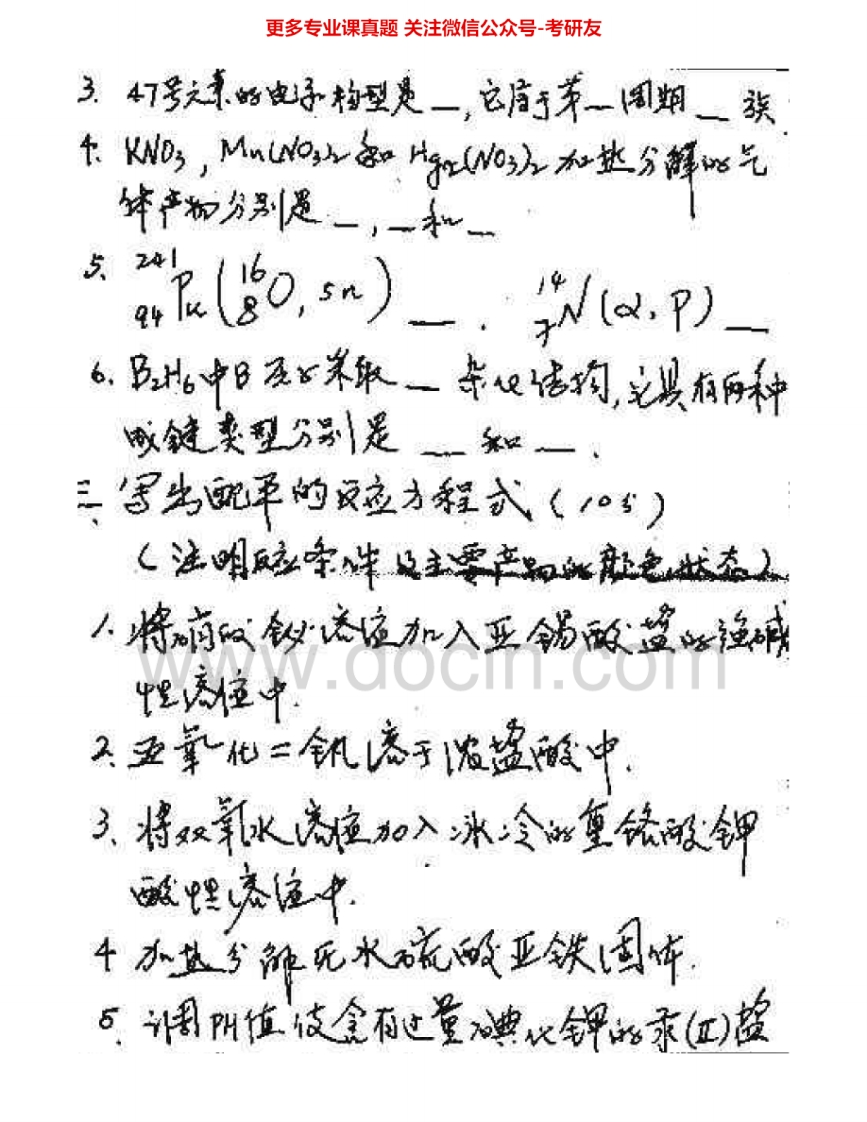 更多专业课真题 关注微信公众号-考研友
3. 47号元素的电子构型是_,它属于第_周期_族
4. KNO3, Mn(NO3)2和Hg2(NO3)2加热分解的气
体产物分别是_,_和_
5. 241 94 Pu(16 8 O, 5n)_. 14 7 N(α,P)_
6. B2H6中B原子采取_杂化结构,它具有两种
成键类型分别是_和_.
三、写出配平的反应方程式(10分)
(注明反应条件及主要产物的颜色,状态)
1. 将硝酸铋溶液加入亚锡酸盐的强碱
性溶液中.
www.docin.com
2. 五氧化二钒溶于浓盐酸中.
3. 将双氧水溶液加入冰冷的重铬酸钾
酸性溶液中.
4 加热分解无水硫酸亚铁固体.
5. 调PH值使含有过量碘化钾的汞(II)盐